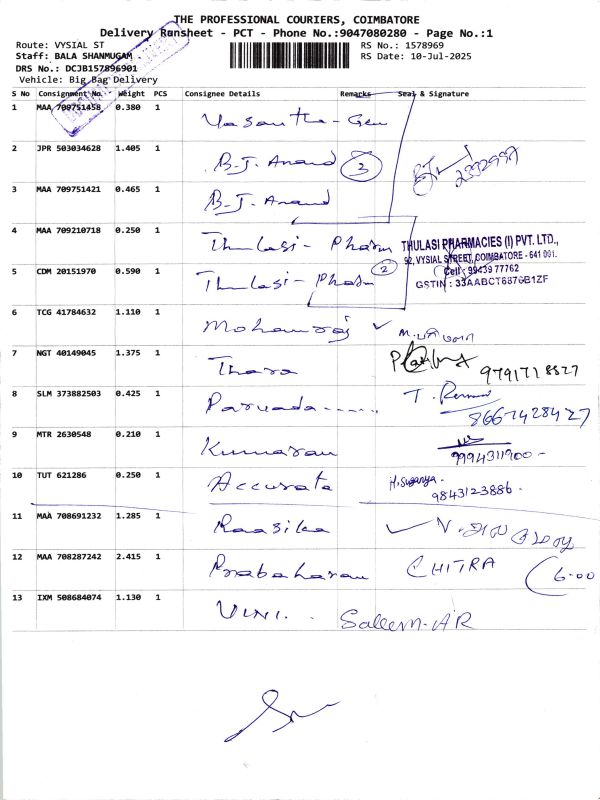 THE PROFESSIONAL COURIERS, COIMBATORE
Delivery Runsheet - PCT - Phone No.:9047080280 - Page No.:1
Route: VYSIAL ST RS No.: 1578969
Staff: BALA SHANMUGAM RS Date: 10-Jul-2025
DRS No.: DCJB157896901
Vehicle: Big Bag Delivery
S No Consignment No. Weight PCS Consignee Details Remarks Seal & Signature
1 MAA 709751458 0.380 1 Vasantha-Gen
2 JPR 503034628 1.405 1 B-J. Anand 2
3 MAA 709751421 0.465 1 B-J. Anand
4 MAA 709210718 0.250 1 Thulasi - Pharm
THULASI PHARMACIES (I) PVT. LTD.,
92, VYSIAL STREET, COIMBATORE - 641 001.
Cell : 99439 77762
GSTIN : 33AABCT6876B1ZF
5 CDM 20151970 0.590 1 Thulasi - Pharm 2
6 TCG 41784632 1.110 1 Mohanraj
7 NGT 40149045 1.375 1 Thara
8 SLM 373882503 0.425 1 Parvada
9 MTR 2630548 0.210 1 Kumaran 9994311900 -
10 TUT 621286 0.250 1 Accurate H. Suganya. 9843123886 -
11 MAA 708691232 1.285 1 Raasika
12 MAA 708287242 2.415 1 Prabaharan CHITRA 6.00
13 IXM 508684074 1.130 1 VINI. Salem-AR